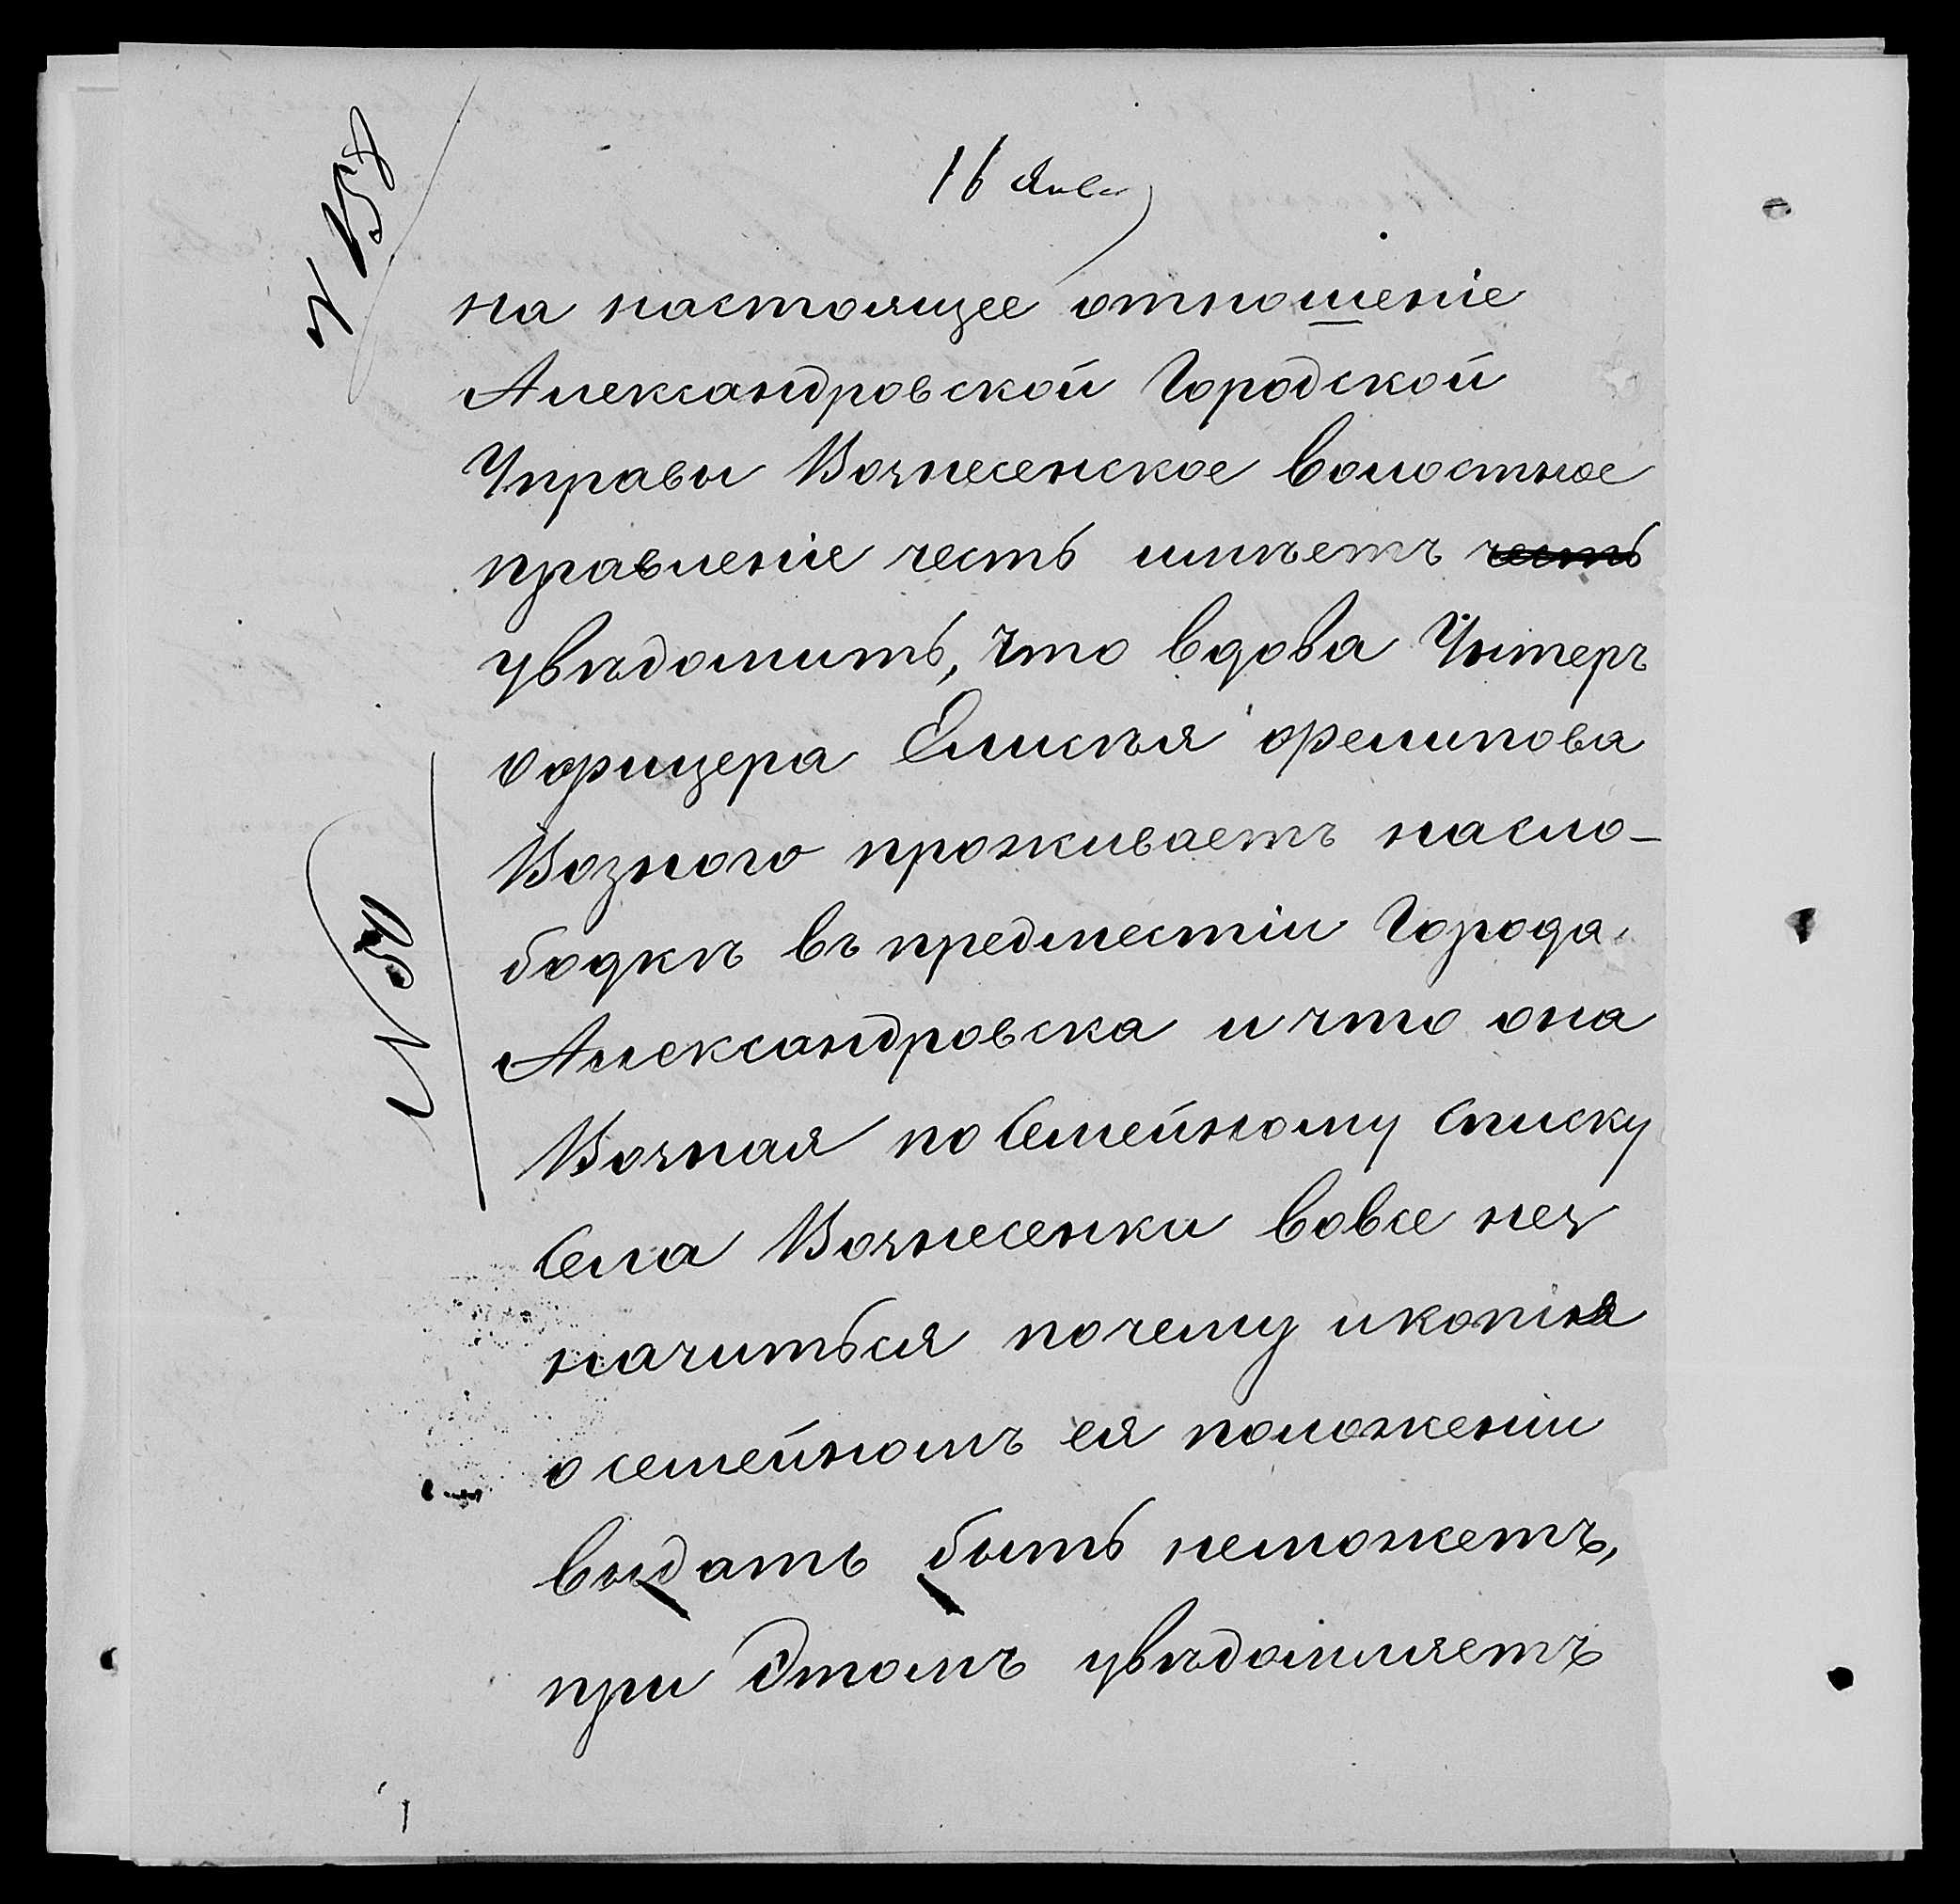 N 158
16 Янв
на настоящее отношеніе
Александровской Городской
Управы Вознесенское волостное
правленіе честь имѣетъ честь
увѣдомить, что вдова Унтеръ
офицера Елисѣя Филипова
Возного проживаетъ насло-
N 50
бодкѣ въ предместіи Города
Александровска и что она
Возная по Семейному списку
Села Вознесенки вовсе нез
начиться почему икопія
о семейномъ ея положеніи
выдать быть неможетъ,
при Этомъ увѣдомляетъ